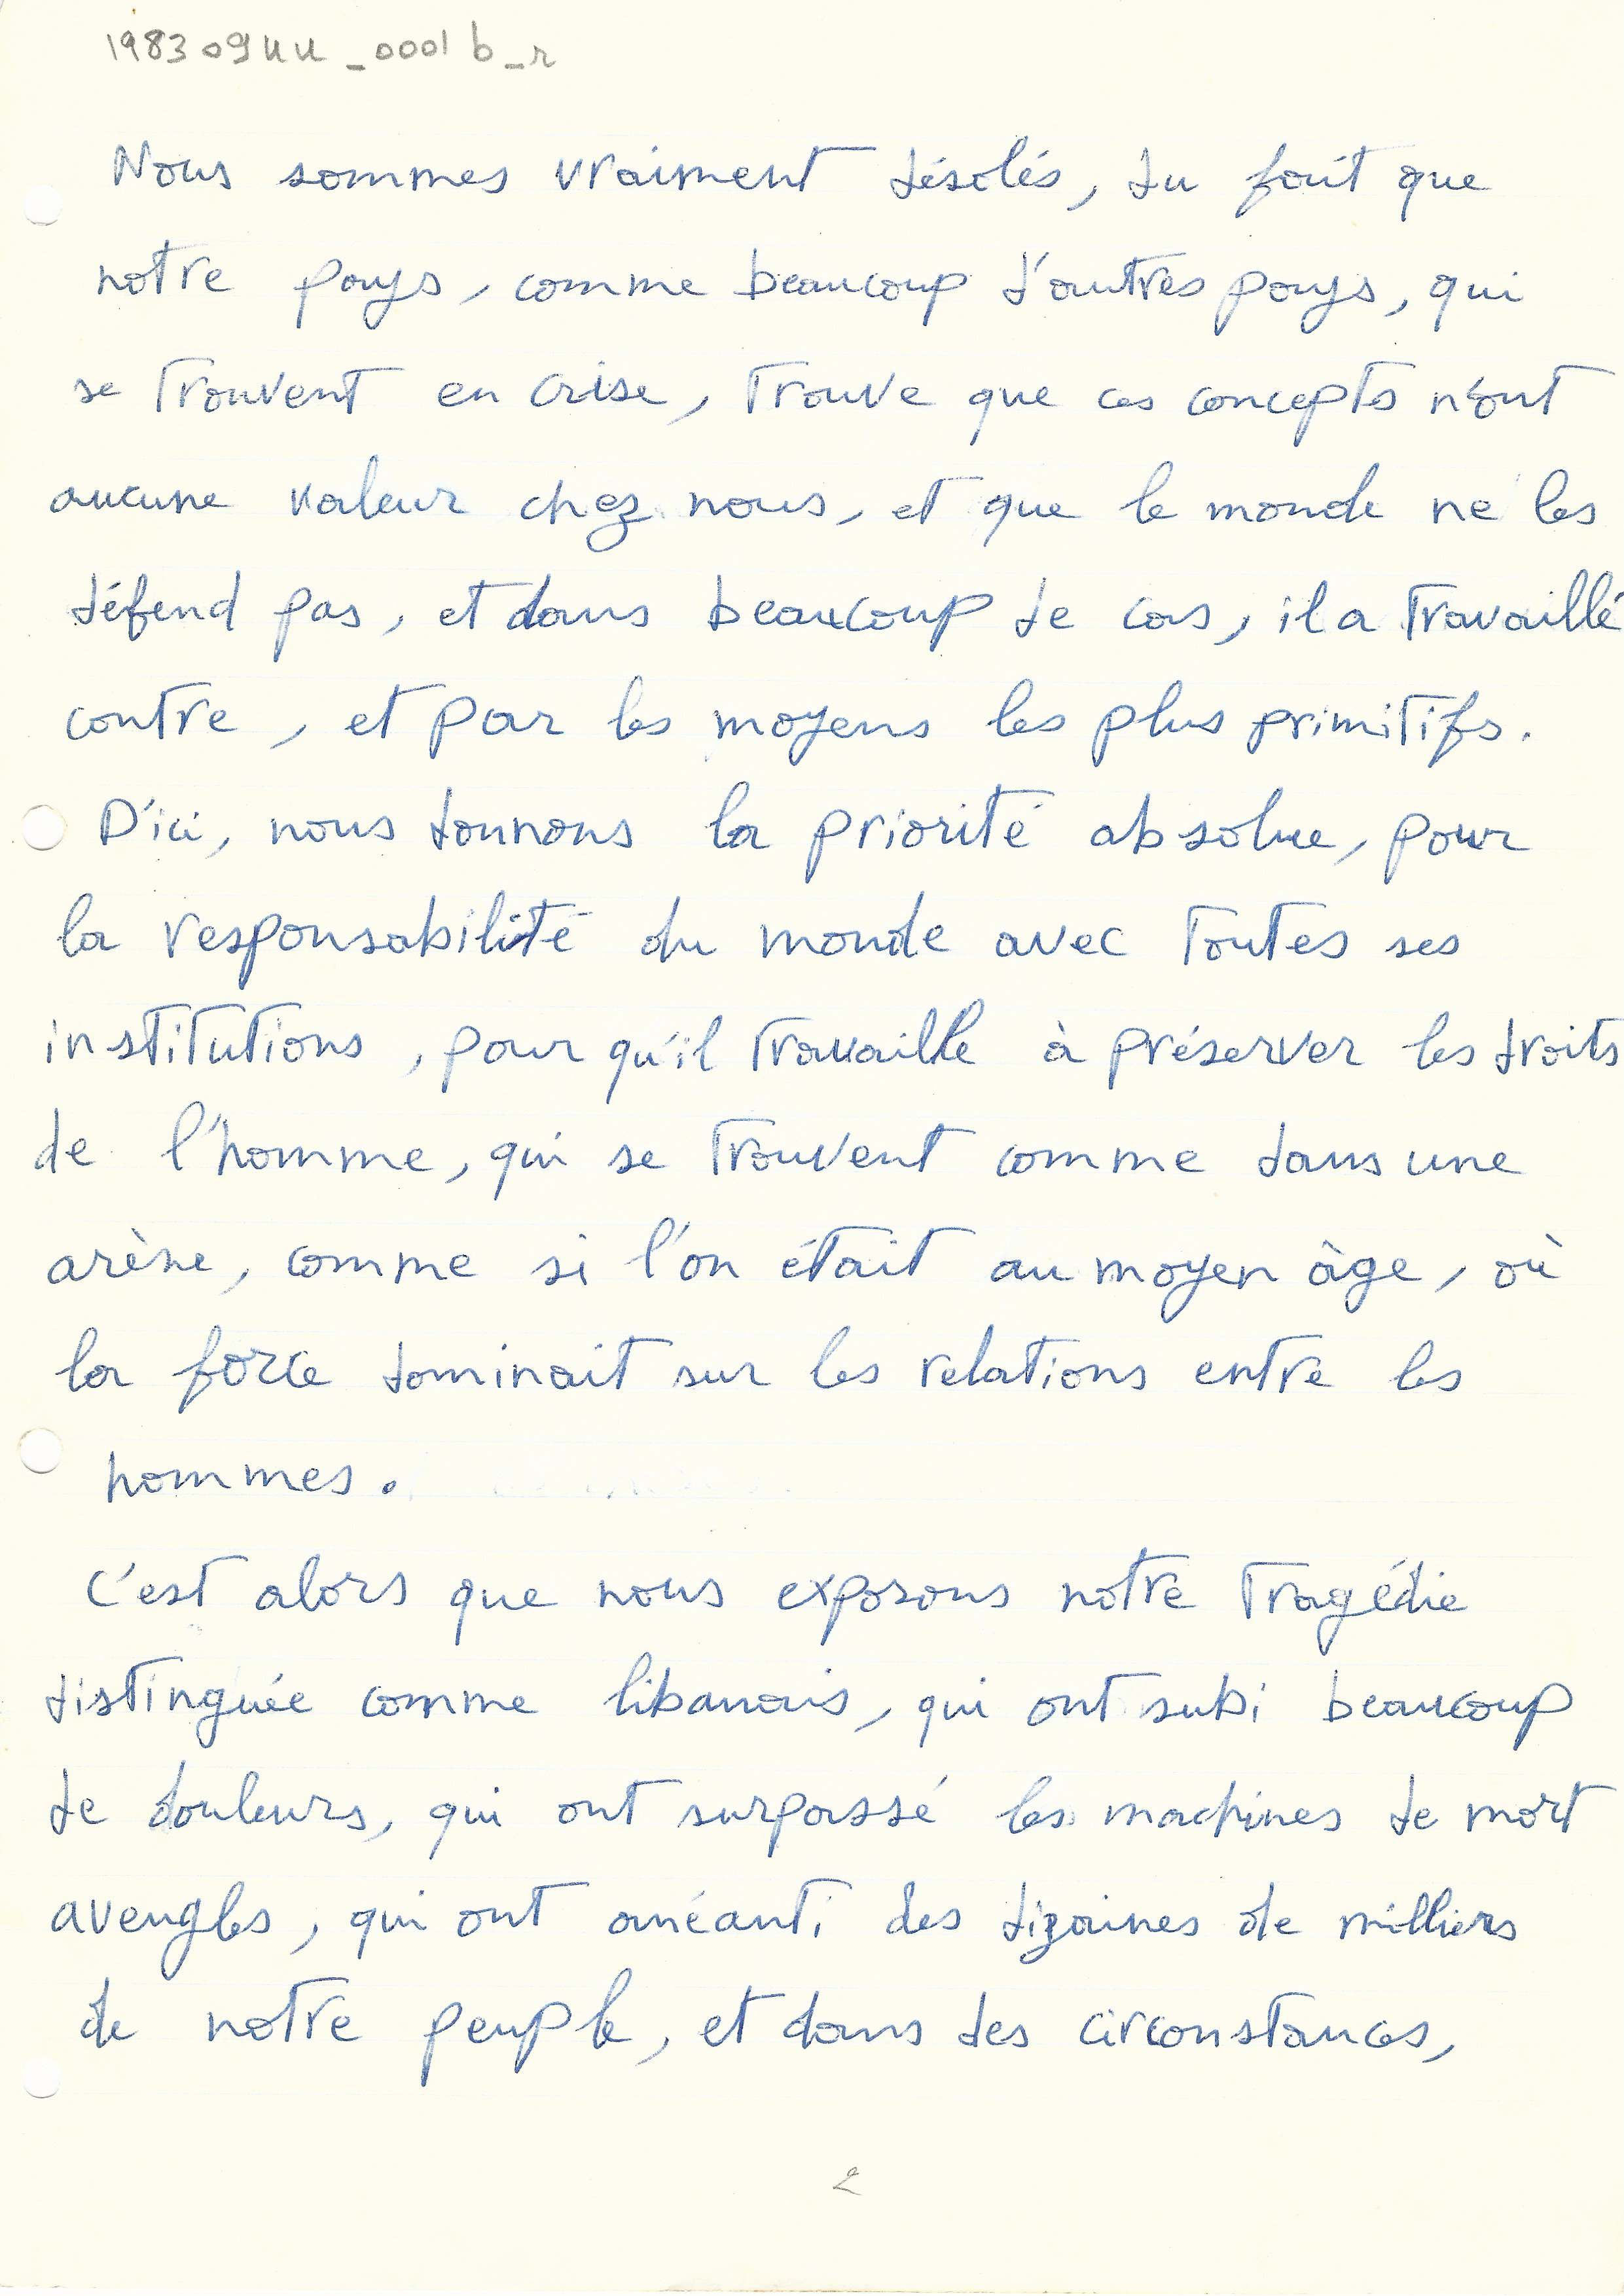 198309UU_0001b_r
Nous sommes vraiment désolés, du fait que
notre pays, comme beaucoup d'autres pays, qui
se trouvent en crise, trouve que ces concepts n'ont
aucune valeur chez nous, et que le monde ne les
défend pas, et dans beaucoup de cas, il a travaillé
contre, et par les moyens les plus primitifs.
D'ici, nous donnons la priorité absolue, pour
la responsabilité du monde avec toutes ses
institutions, pour qu'il travaille à préserver les droits
de l'homme, qui se trouvent comme dans une
arène, comme si l'on était au moyen âge, où
la force dominait sur les relations entre les
hommes.
C'est alors que nous exposons notre tragédie
distinguée comme libanais, qui ont subi beaucoup
de douleurs, qui ont surpassé les machines de mort
aveugles, qui ont anéanti des dizaines de milliers
de notre peuple, et dans des circonstances,
2